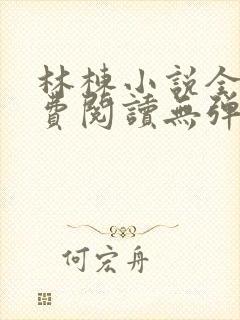 林棟小説全
費閱讀無彈
何宏舟